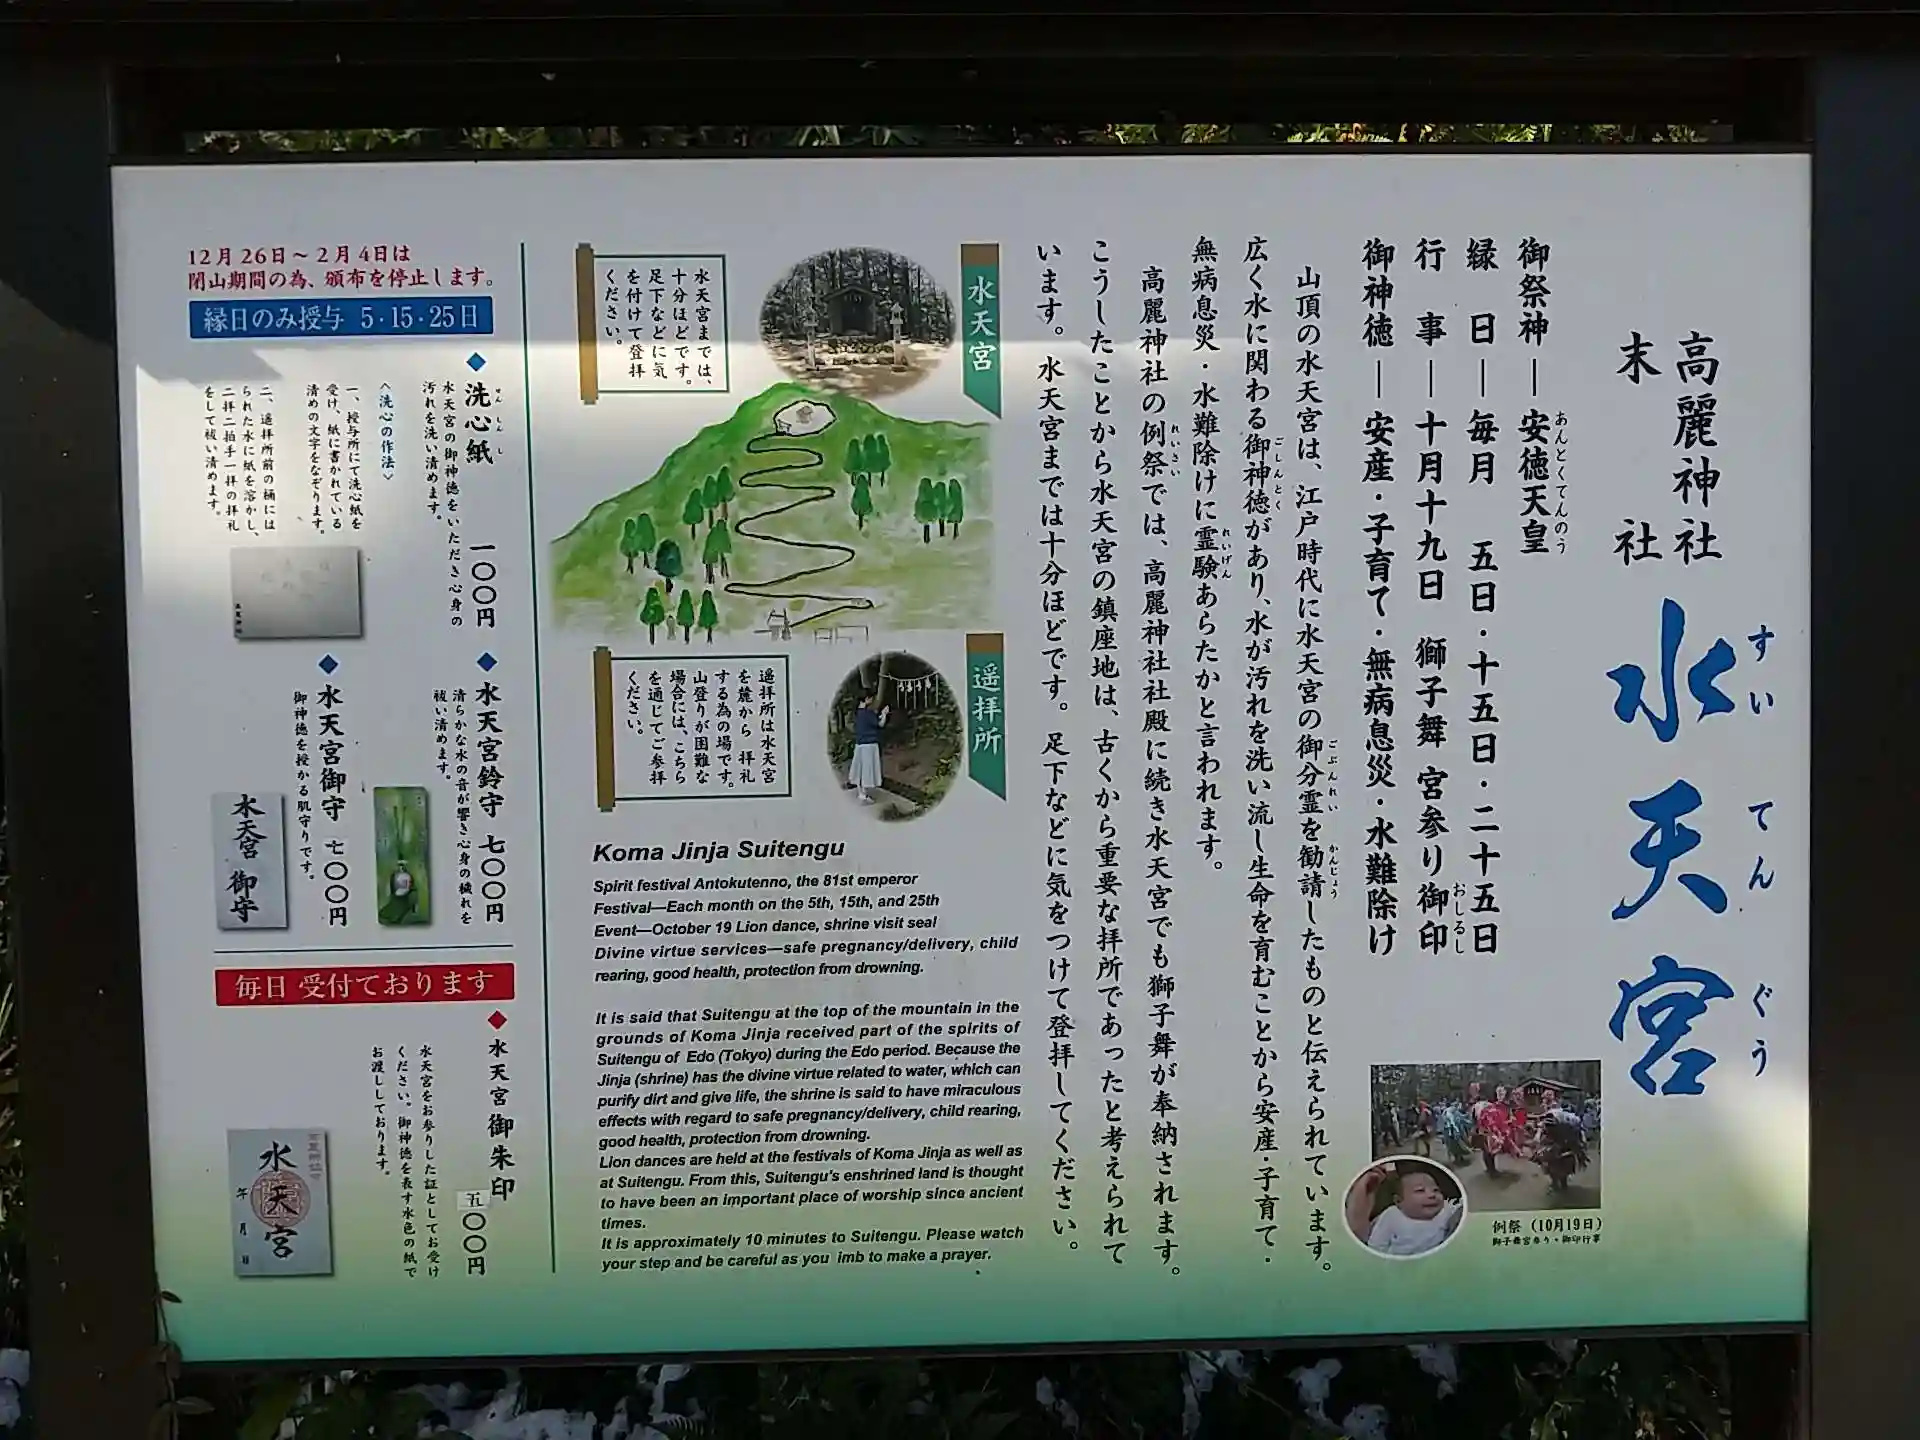 高麗神社
末社
水天宮
すいてんぐう
御祭神―安徳天皇
あんとくてんのう
縁日―毎月 五日・十五日・二十五日
行事―十月十九日 獅子舞 宮参り御印
おしるし
御神徳―安産・子育て・無病息災・水難除け
山頂の水天宮は、江戸時代に水天宮の御分霊を勧請したものと伝えられています。
ごぶんれい
かんじょう
広く水に関わる御神徳があり、水が汚れを洗い流し生命を育むことから安産・子育て・
ごしんとく
無病息災・水難除けに霊験あらたかと言われます。
れいげん
高麗神社の例祭では、高麗神社社殿に続き水天宮でも獅子舞が奉納されます。
れいさい
こうしたことから水天宮の鎮座地は、古くから重要な拝所であったと考えられて
います。水天宮までは十分ほどです。足下などに気をつけて登拝してください。
例祭（10月19日）
獅子舞宮参り・御印行事
水天宮
水天宮までは、
十分ほどです。
足下などに気
を付けて登拝
ください。
遥拝所
遥拝所は水天宮
を麓から 拝礼
する為の場です。
山登りが困難な
場合には、こちら
を通じてご参拝
ください。
Koma Jinja Suitengu
Spirit festival Antokutenno, the 81st emperor
Festival—Each month on the 5th, 15th, and 25th
Event—October 19 Lion dance, shrine visit seal
Divine virtue services—safe pregnancy/delivery, child
rearing, good health, protection from drowning.
It is said that Suitengu at the top of the mountain in the
grounds of Koma Jinja received part of the spirits of
Suitengu of Edo (Tokyo) during the Edo period. Because the
Jinja (shrine) has the divine virtue related to water, which can
purify dirt and give life, the shrine is said to have miraculous
effects with regard to safe pregnancy/delivery, child rearing,
good health, protection from drowning.
Lion dances are held at the festivals of Koma Jinja as well as
at Suitengu. From this, Suitengu's enshrined land is thought
to have been an important place of worship since ancient
times.
It is approximately 10 minutes to Suitengu. Please watch
your step and be careful as you imb to make a prayer.
12月26日～2月4日は
閉山期間の為、頒布を停止します。
縁日のみ授与 5・15・25日
◆洗心紙 一〇〇円
せんしんし
水天宮の御神徳をいただき心身の
汚れを洗い清めます。
〈洗心の作法〉
一、授与所にて洗心紙を
受け、紙に書かれている
清めの文字をなぞります。
二、遥拝所前の桶には
られた水に紙を溶かし、
二拝二拍手一拝の拝礼
をして祓い清めます。
◆水天宮鈴守 七〇〇円
清らかな水の音が響き心身の穢れを
祓い清めます。
◆水天宮御守 七〇〇円
御神徳を授かる肌守りです。
水天宮 御守
毎日 受付ております
◆水天宮御朱印 五〇〇円
水天宮をお参りした証としてお受け
ください。御神徳を表す水色の紙で
お渡ししております。
水天宮
年 月 日